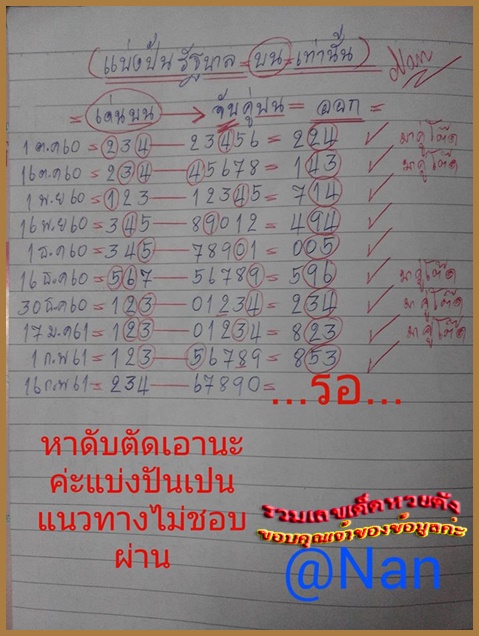 (แบ่งปัน รัฐบาล = บน = เท่านั้น) Nan
= เด่นบน → จับคู่บน = ออก =
1 ต.ค 60 = 234 — 23456 = 224 ✓ มาคู่โต๊ด
16 ต.ค 60 = 234 — 45678 = 143 ✓ มาคู่โต๊ด
1 พ.ย 60 = 123 — 12345 = 714 ✓
16 พ.ย 60 = 345 — 89012 = 494 ✓
1 ธ.ค 60 = 345 — 78901 = 005 ✓
16 ธ.ค 60 = 567 — 56789 = 596 ✓ มาคู่โต๊ด
30 ธ.ค 60 = 123 — 01234 = 234 ✓ มาคู่โต๊ด
17 ม.ค 61 = 123 — 01234 = 823 ✓ มาคู่โต๊ด
1 ก.พ 61 = 123 — 56789 = 853 ✓
16 ก.พ 61 = 234 — 67890 = ...รอ...
หาดับตัดเอานะ
ค่ะแบ่งปันเปน
แนวทางไม่ชอบ
ผ่าน
รวมเลขเด็ดหวยดัง
ขอบคุณเจ้าของข้อมูลค่ะ
@Nan